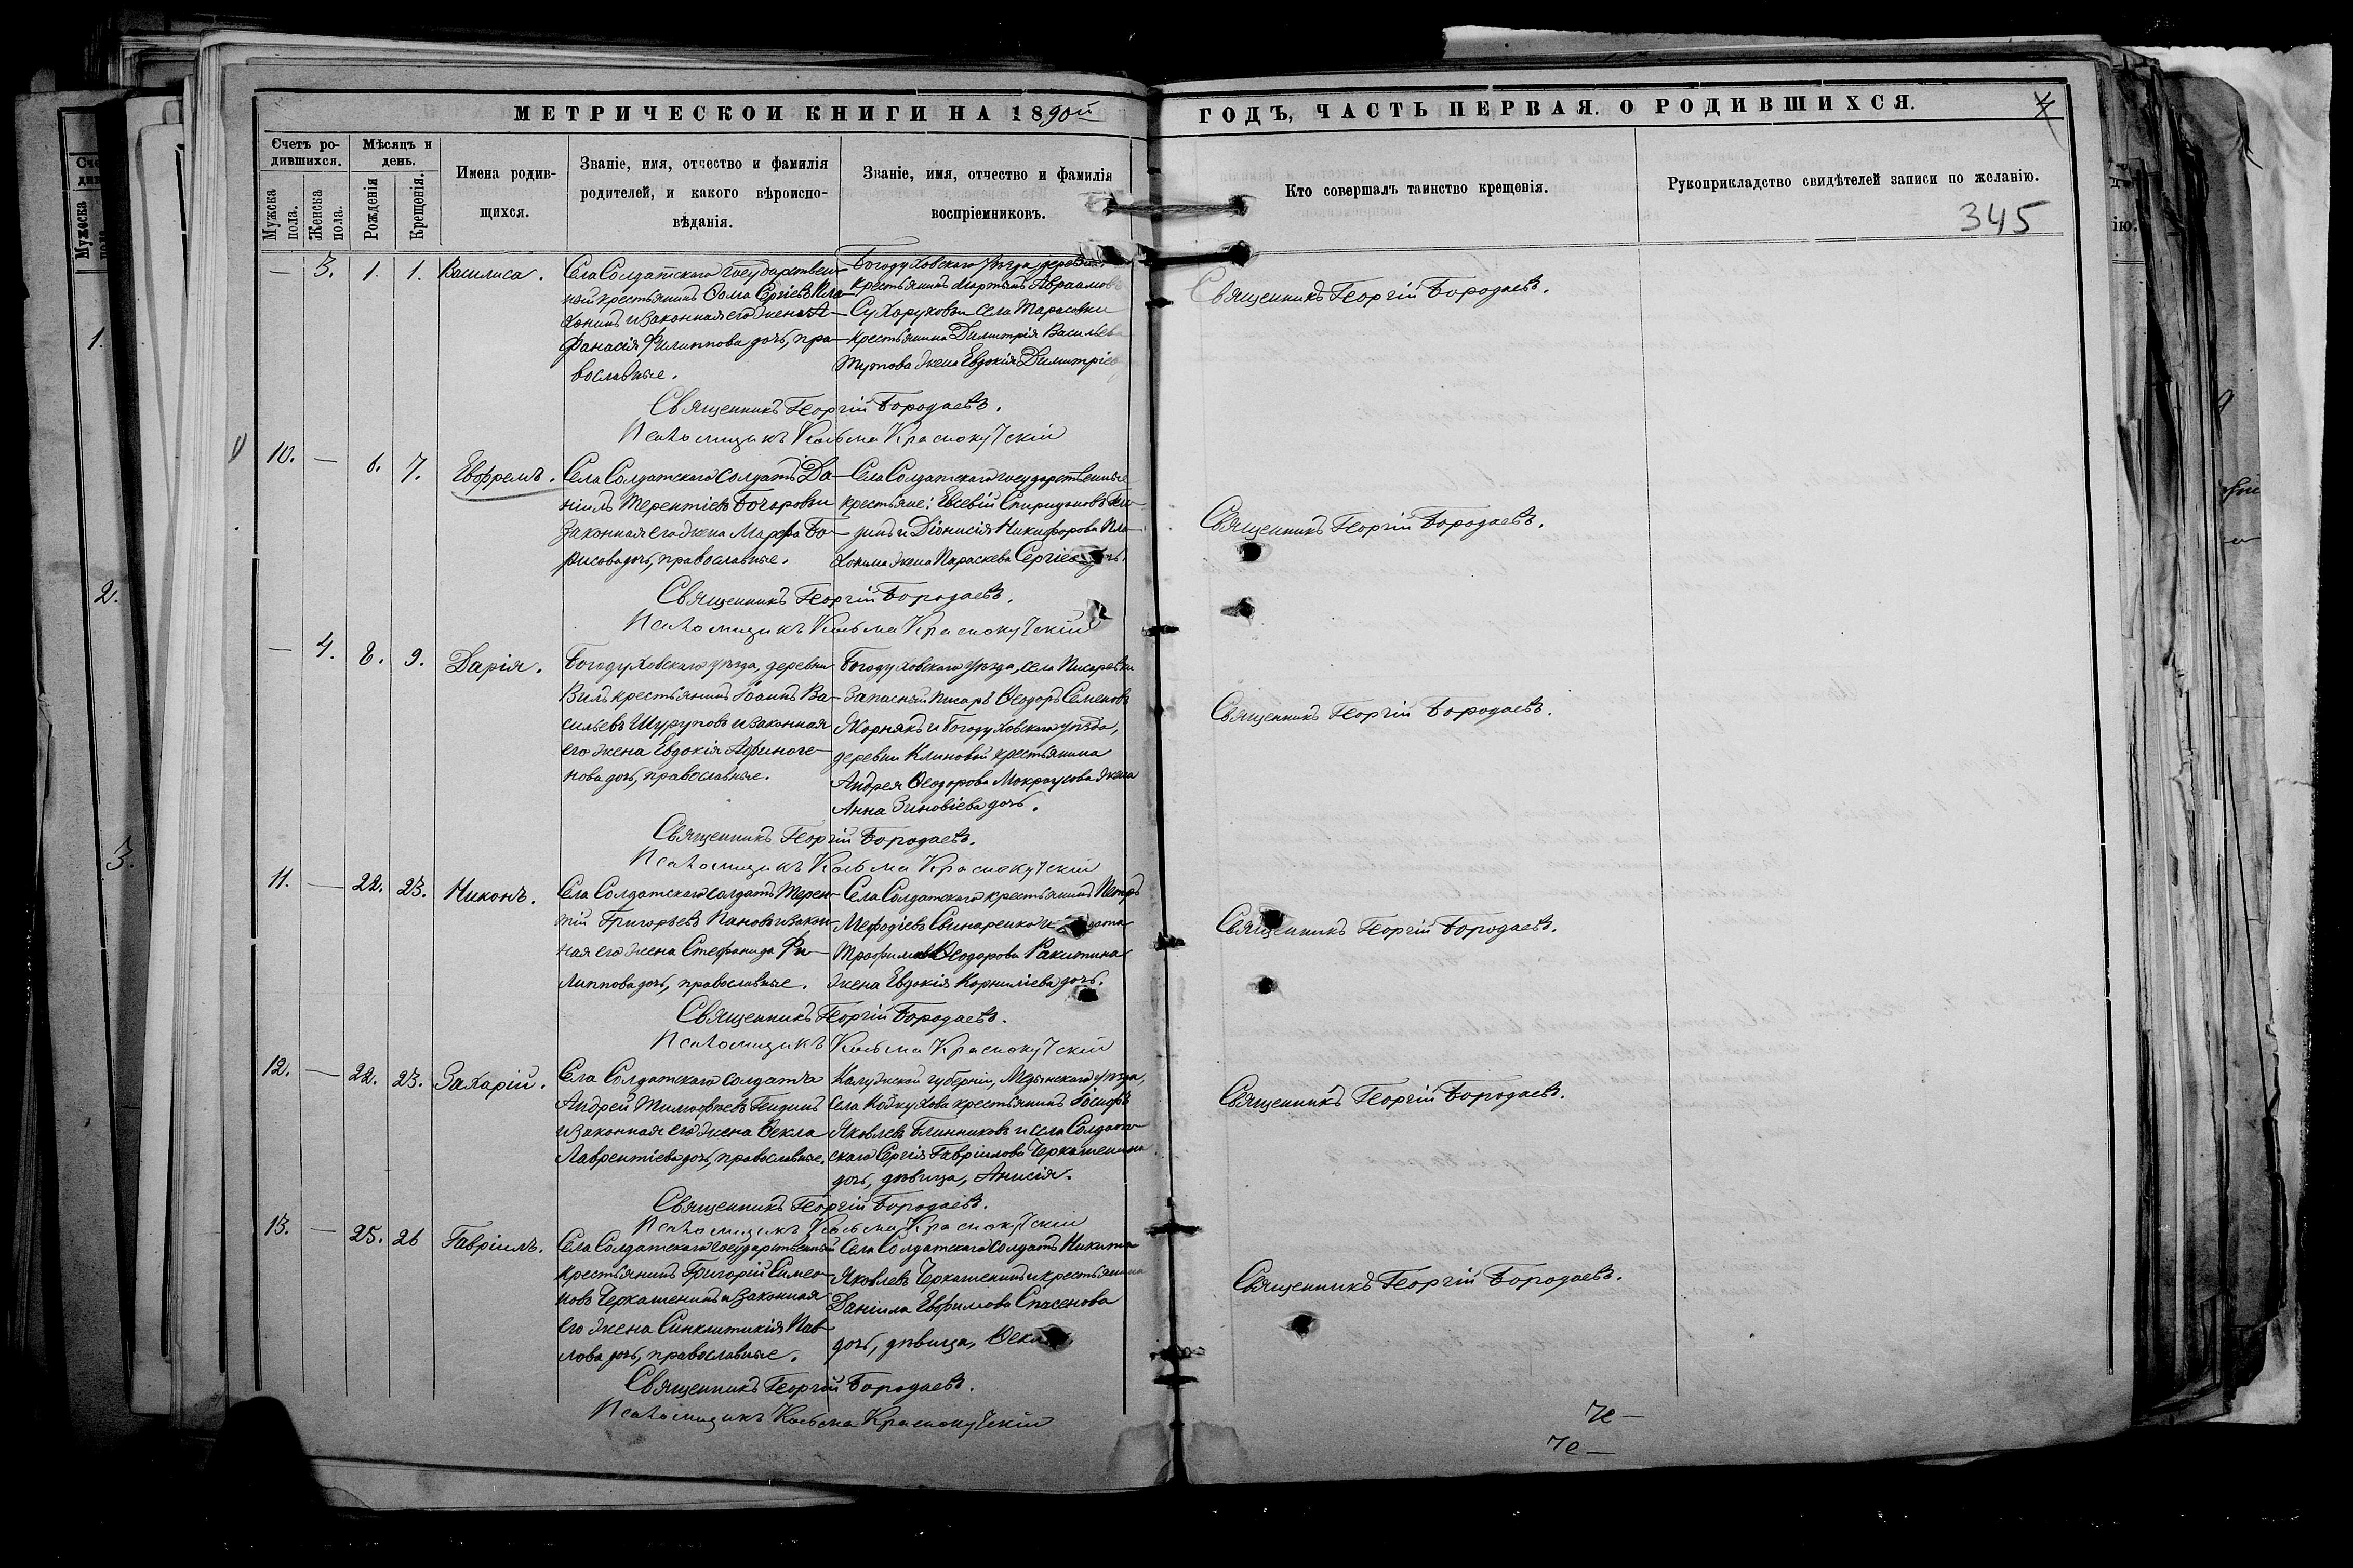 МЕТРИЧЕСКОЙ КНИГИ НА 1890й
ГОДЪ, ЧАСТЬ ПЕРВАЯ. О РОДИВШИХСЯ.
345
Счетъ ро-
дившихся.
Мужска
пола.
Женска
пола.
Мѣсяцъ и
день.
Рожденія
Крещенія.
Имена родив-
щихся.
Званіе, имя, отчество и фамилія
родителей, и какого вѣроиспо-
вѣданія.
Званіе, имя, отчество и фамилія
воспріемниковъ.
Кто совершалъ таинство крещенія.
Рукоприкладство свидѣтелей записи по желанію.
— 3. 1. 1. Василиса.
Села Солдатскаго государствен-
ный крестьянинъ Ѳома Сергіевъ Пла-
хонинъ и законная его жена А-
фанасія Филиппова дочь, пра-
вославные.
Богодуховскаго уѣзда, деревни
крестьянинъ Мартинъ Авраамовъ
Сухоруковъ и села Тарасовки
крестьянина Димитрія Васильева
Тутова жена Евдокія Димитріев
Священникъ Георгій Бородаевъ.
Священникъ Георгій Бородаевъ.
Псаломщикъ Косьма Краснокутскій
10. — 6. 7. Ефремъ.
Села Солдатскаго солдатъ Да-
ніилъ Терентіевъ Бочаровъ и
законная его жена Марѳа Бо-
рисова дочь, православные.
Села Солдатскаго государственные
крестьяне: Евсевій Спиридоновъ
и Діонисія Никифорова Пла-
хонина жена Параскева Сергіева дочь.
Священникъ Георгій Бородаевъ.
Священникъ Георгій Бородаевъ.
Псаломщикъ Косьма Краснокутскій
— 4. 8. 9. Дарія.
Богодуховскаго уѣзда, деревни
Вилъ крестьянинъ Іоаннъ Ва-
сильевъ Шуруповъ и законная
его жена Евдокія Аѳиноге-
нова дочь, православные.
Богодуховскаго уѣзда, села Писаревки
запасный писарь Ѳеодоръ Семеновъ
Якорнякъ и Богодуховскаго уѣзда,
деревни Клиновой крестьянина
Андрея Ѳеодорова Мокроусова жена
Анна Зиновіева дочь.
Священникъ Георгій Бородаевъ.
Священникъ Георгій Бородаевъ.
Псаломщикъ Косьма Краснокутскій
11. — 22. 23. Никонъ.
Села Солдатскаго солдатъ Терен-
тій Григорьевъ Пановъ и закон-
ная его жена Стефанида Фи-
липпова дочь, православные.
Села Солдатскаго крестьянинъ Петръ
Меѳодіевъ Свинаренко и солдата
Трофима Ѳеодорова Ракитина
жена Евдокія Корниліева дочь.
Священникъ Георгій Бородаевъ.
Священникъ Георгій Бородаевъ.
Псаломщикъ Косьма Краснокутскій
12. — 22. 23. Захарій.
Села Солдатскаго солдатъ
Андрей Тимоѳеевъ Гендинъ
и законная его жена Ѳекла
Лаврентіева дочь, православные.
Калужской губерніи, Медынскаго уѣзда,
села Кожухова крестьянинъ Іосифъ
Яковлевъ Блинниковъ и села Солдат-
скаго Сергія Гавріилова Черкашенина
дочь, дѣвица, Анисія.
Священникъ Георгій Бородаевъ.
Священникъ Георгій Бородаевъ.
Псаломщикъ Косьма Краснокутскій
13. — 25. 26 Гавріилъ.
Села Солдатскаго государственный
крестьянинъ Григорій Симео-
новъ Черкашенинъ и законная
его жена Синклитикія Пав-
лова дочь, православные.
Села Солдатскаго солдатъ Никита
Яковлевъ Черкашенинъ и крестьянина
Даніила Евѳимова Спасенова
дочь, дѣвица, Ѳекла.
Священникъ Георгій Бородаевъ.
Священникъ Георгій Бородаевъ.
Псаломщикъ Косьма Краснокутскій